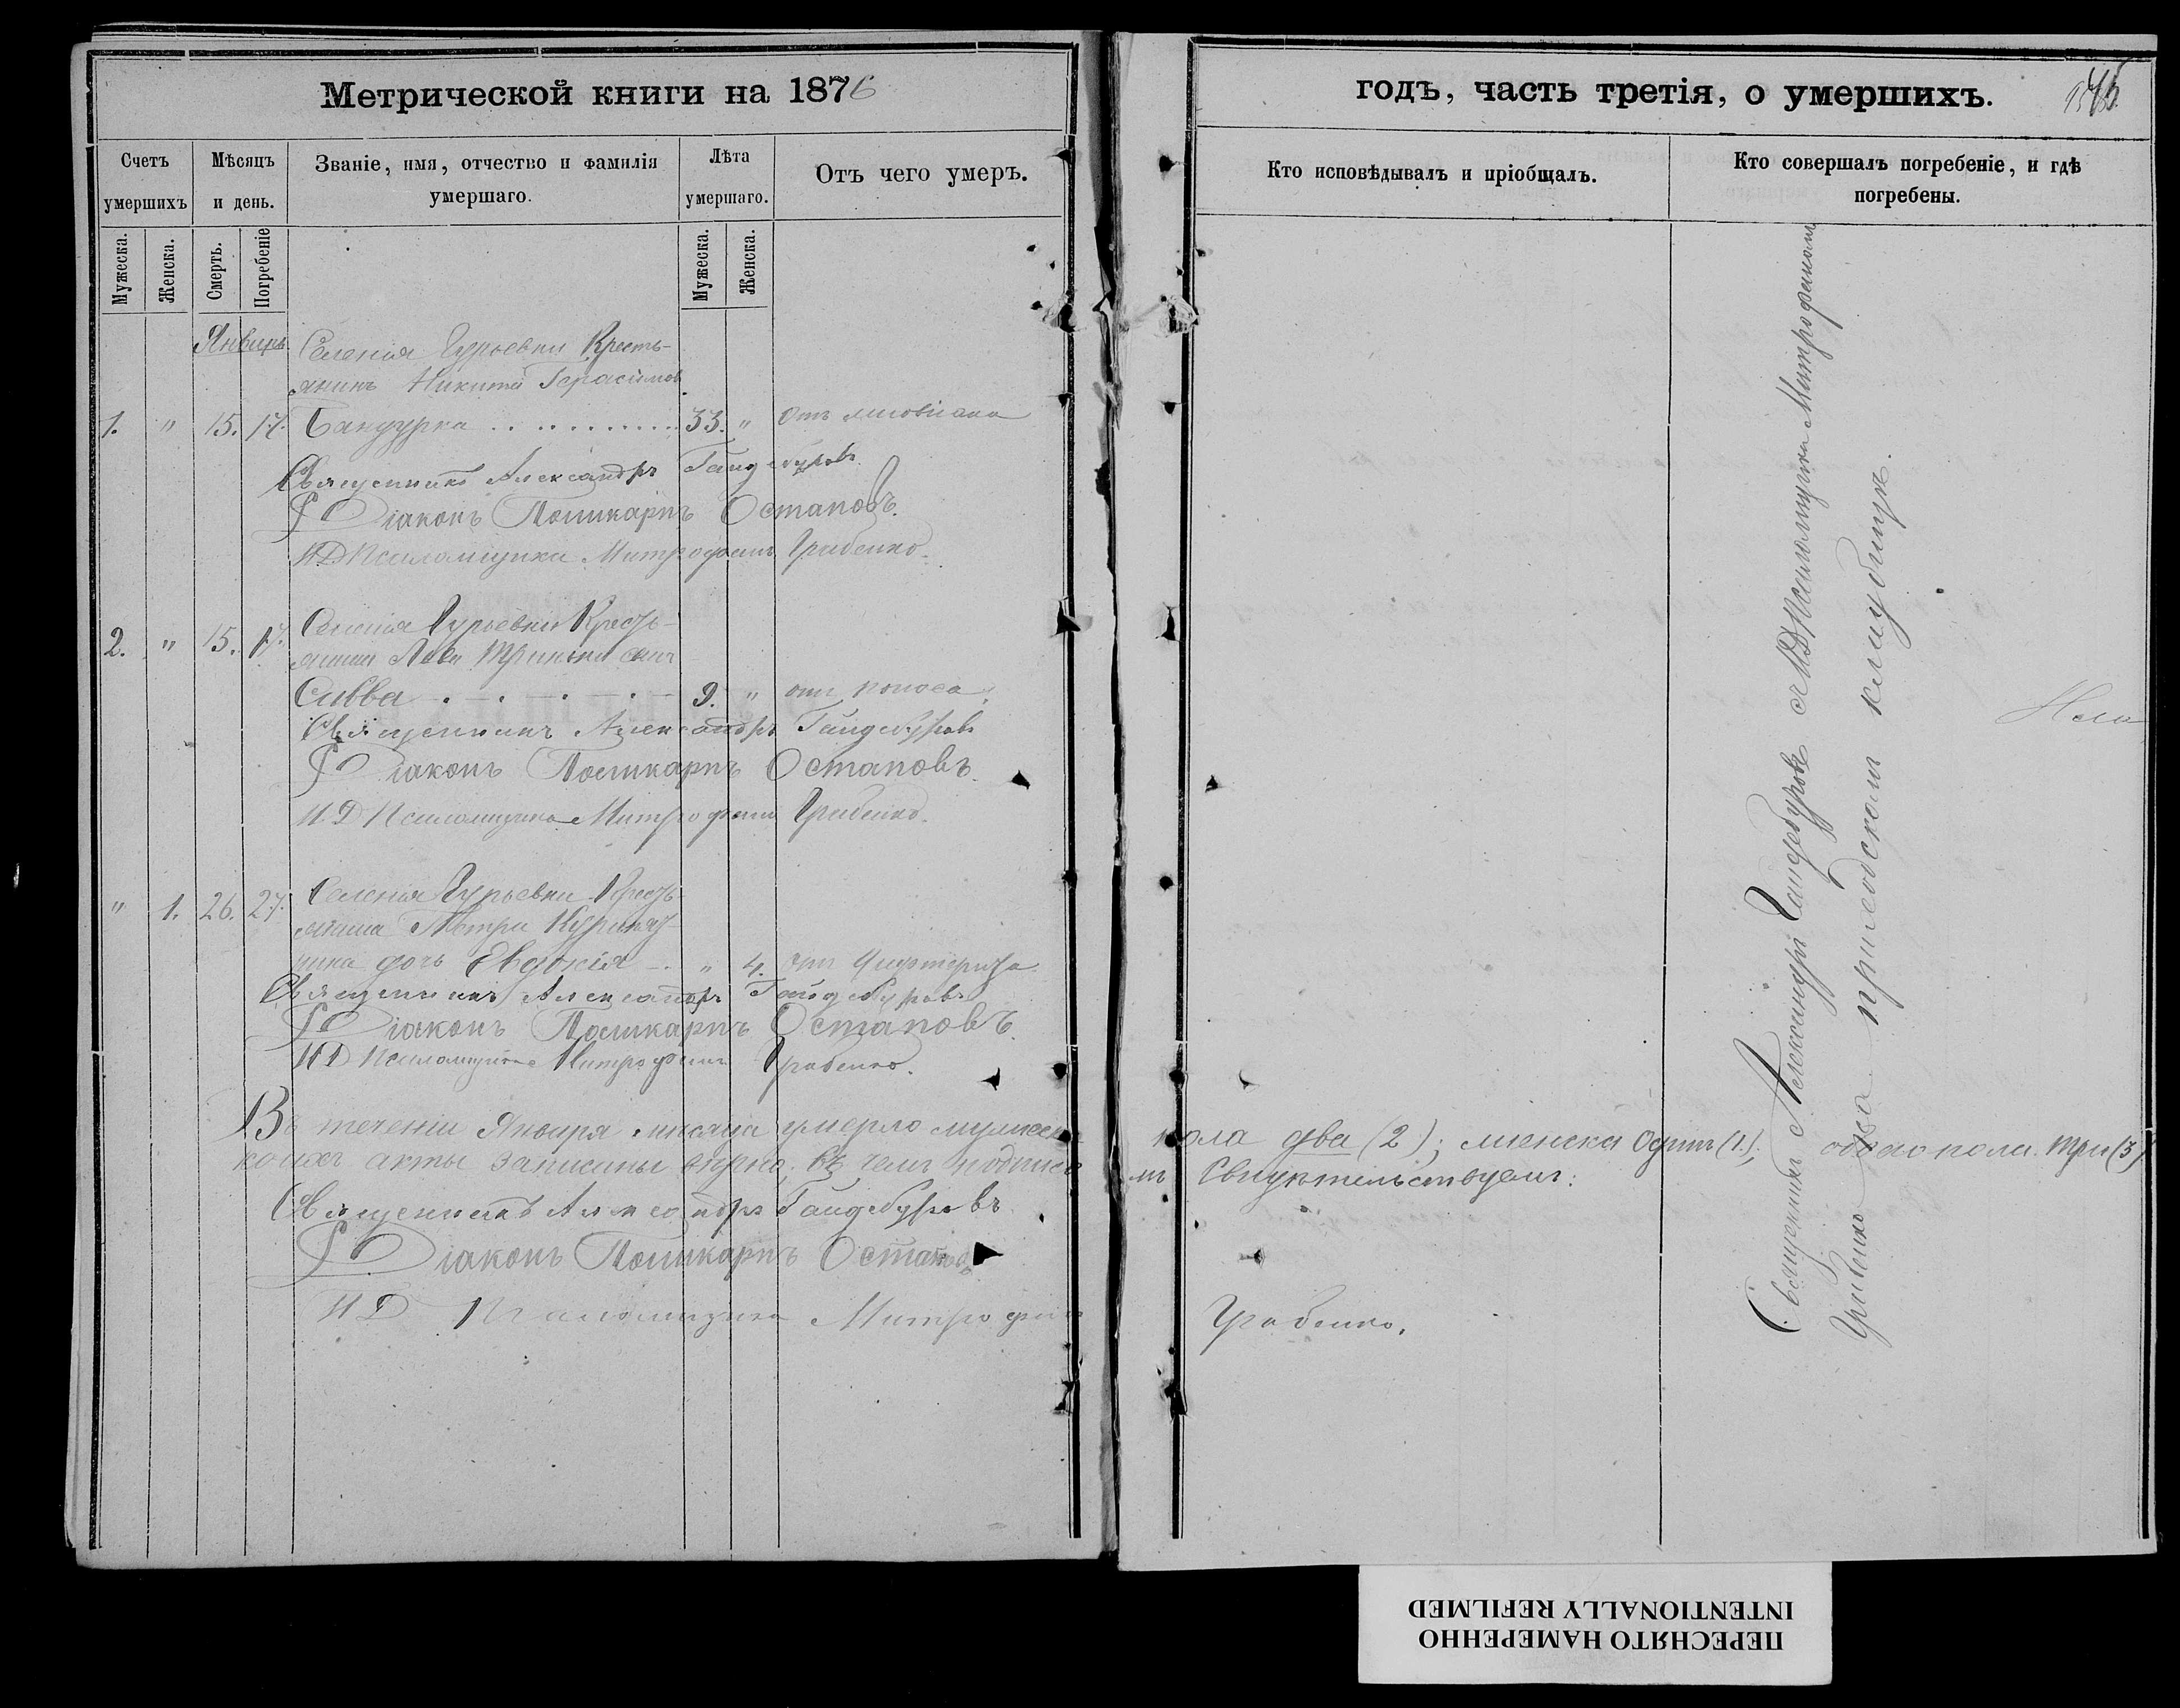 Метрической книги на 1876
годъ, часть третія, о умершихъ.
Счетъ умершихъ
Мѣсяцъ и день.
Званіе, имя, отчество и фамилія умершаго.
Лѣта умершаго.
Отъ чего умеръ.
Кто исповѣдывалъ и пріобщалъ.
Кто совершалъ погребеніе, и гдѣ погребены.
Мужеска.
Женска.
Смерть.
Погребеніе
Мужеска.
Женска.
Январь. Селенія Гурьевки Кресть-
янинъ Никита Герасимовъ
1. " 15. 17. Бандурка 33. " Отъ
Священникъ Александръ Гайдебуровъ
Діаконъ Поликарпъ Остаповъ.
И.Д Псаломщика Митрофанъ Грабенко.
2. " 15. 17. Селенія Гурьевки Кресть-
янина сынъ
Савва 9. " отъ поноса.
Священникъ Александръ Гайдебуровъ
Діаконъ Поликарпъ Остаповъ.
И.Д Псаломщика Митрофанъ Грабенко.
" 1. 26. 27. Селенія Гурьевки Кресть-
янина Петра
дочь Евдокія " 4. отъ дифтерита
Священникъ Александръ Гайдебуровъ
Діаконъ Поликарпъ Остаповъ.
И Д Псаломщика Митрофанъ Грабенко.
Въ теченіи Января мѣсяца умерло мужеска пола два (2); женска одинъ (1.); обоего пола три (3)
коихъ акты записаны вѣрно, въ чемъ подписомъ свидѣтельствуемъ:
Священникъ Александръ Гайдебуровъ
Діаконъ Поликарпъ Остаповъ
И Д Псаломщика Митрофанъ Грабенко.
Священникъ Александръ Гайдебуровъ с И.Д Псаломщика Митрофаномъ
Грабенко на приходскомъ кладбищѣ.